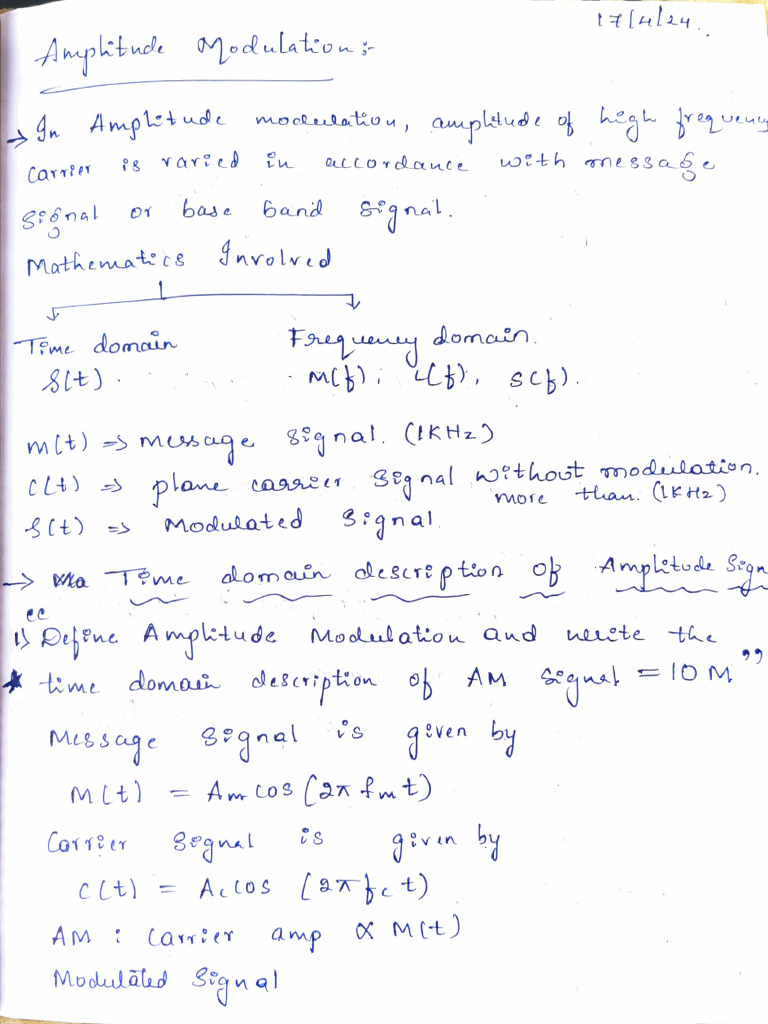 17/4/24..
Amplitude Modulation :-
→ In Amplitude modulation, amplitude of high frequency
carrier is varied in accordance with message
signal or base band signal.
Mathematics Involved
Time domain Frequency domain.
S(t). M(f), C(f), S(f).
m(t) => message signal. (1KHz)
C(t) => plane carrier signal without modulation.
more than. (1KHz)
S(t) => Modulated signal
→ Time domain description of Amplitude Sign
“
1) Define Amplitude Modulation and write the
* time domain description of AM signal = 10 M ”
Message signal is given by
M(t) = Am cos (2π fm t)
Carrier signal is given by
C(t) = Ac cos (2π fc t)
AM : Carrier amp ∝ M(t)
Modulated signal